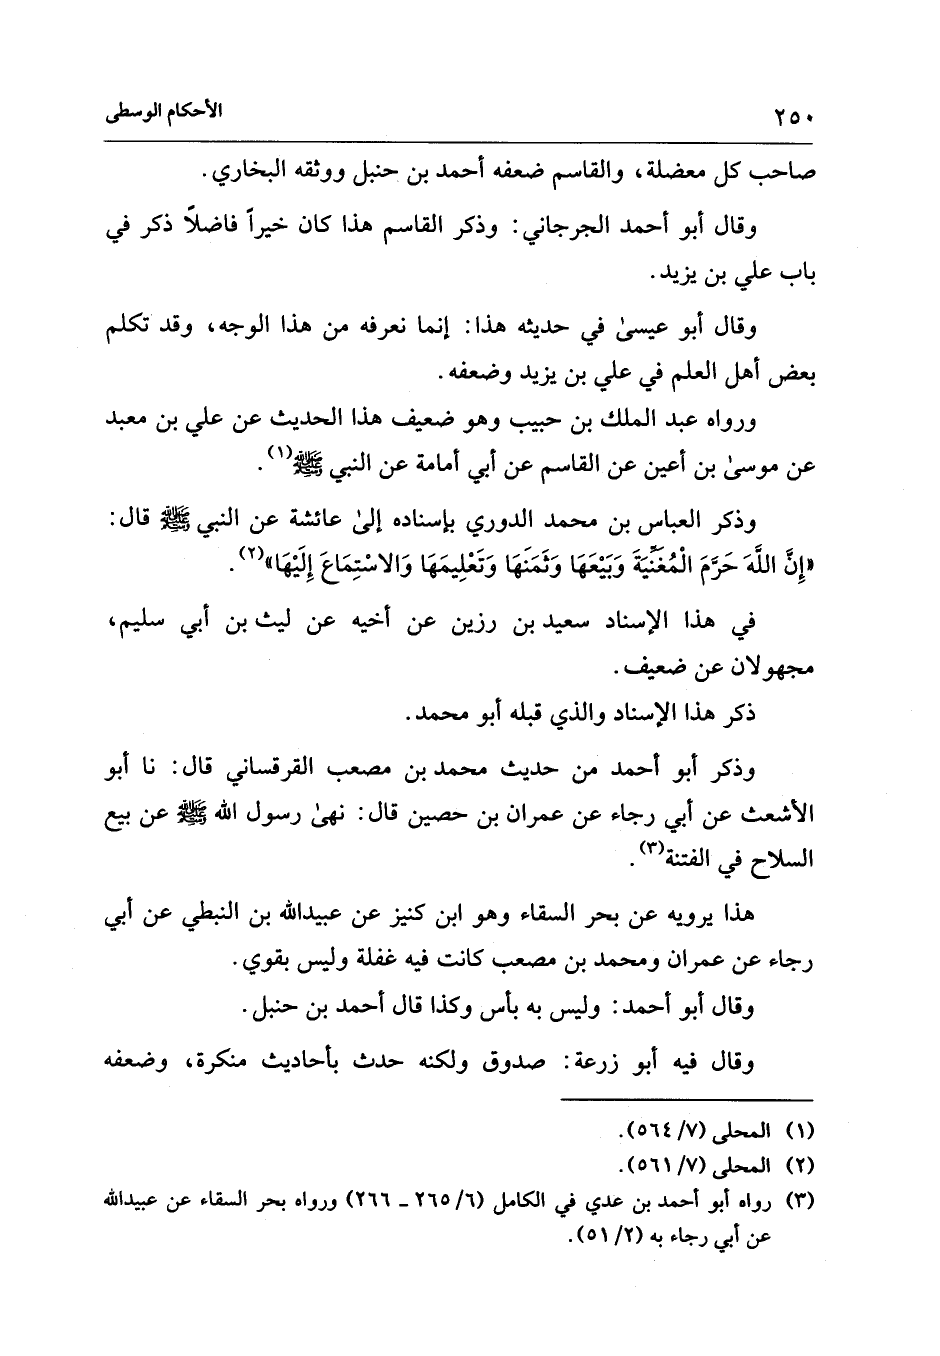 ٢٥٠ الأحكام الوسطى
صاحب كل معضلة، والقاسم ضعفه أحمد بن حنبل ووثقه البخاري.
وقال أبو أحمد الجرجاني: وذكر القاسم هذا كان خيراً فاضلاً ذكر في
باب علي بن يزيد.
وقال أبو عيسىٰ في حديثه هذا: إنما نعرفه من هذا الوجه، وقد تكلم
بعض أهل العلم في علي بن يزيد وضعفه.
ورواه عبد الملك بن حبيب وهو ضعيف هذا الحديث عن علي بن معبد
عن موسىٰ بن أعين عن القاسم عن أبي أمامة عن النبي ﷺ(١).
وذكر العباس بن محمد الدوري بإسناده إلىٰ عائشة عن النبي ﷺ قال:
«إِنَّ اللَّهَ حَرَّمَ الْمُغَنِّيَةَ وَبَيْعَهَا وَثَمَنَهَا وَتَعْلِيمَهَا وَالاسْتِمَاعَ إِلَيْهَا»(٢).
في هذا الإسناد سعيد بن رزين عن أخيه عن ليث بن أبي سليم،
مجهولان عن ضعيف.
ذكر هذا الإسناد والذي قبله أبو محمد.
وذكر أبو أحمد من حديث محمد بن مصعب القرقساني قال: نا أبو
الأشعث عن أبي رجاء عن عمران بن حصين قال: نهىٰ رسول الله ﷺ عن بيع
السلاح في الفتنة(٣).
هذا يرويه عن بحر السقاء وهو ابن كنيز عن عبيدالله بن النبطي عن أبي
رجاء عن عمران ومحمد بن مصعب كانت فيه غفلة وليس بقوي.
وقال أبو أحمد: وليس به بأس وكذا قال أحمد بن حنبل.
وقال فيه أبو زرعة: صدوق ولكنه حدث بأحاديث منكرة، وضعفه
(١) المحلى (٧/ ٥٦٤).
(٢) المحلى (٧/ ٥٦١).
(٣) رواه أبو أحمد بن عدي في الكامل (٦/ ٢٦٥ ـ ٢٦٦) ورواه بحر السقاء عن عبيدالله
عن أبي رجاء به (٢/ ٥١).